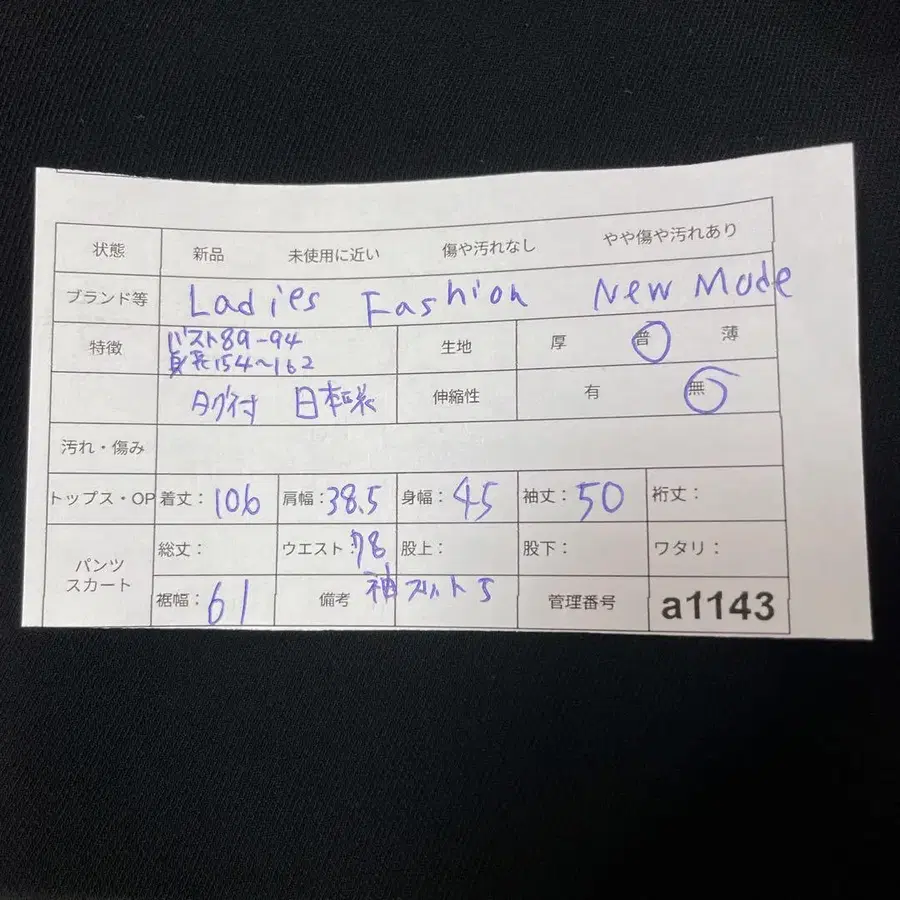 状態 新品 未使用に近い 傷や汚れなし やや傷や汚れあり
ブランド等 Ladies Fashion New Mode
特徴 バスト89-94 生地 厚 普 薄
身長154〜162
タグ付 日本製 伸縮性 有 無
汚れ・傷み
トップス・OP 着丈: 106 肩幅: 38.5 身幅: 45 袖丈: 50 裄丈:
パンツ 総丈: ウエスト: 78 股上: 股下: ワタリ:
スカート 裾幅: 61 備考 袖 スリット5 管理番号 a1143